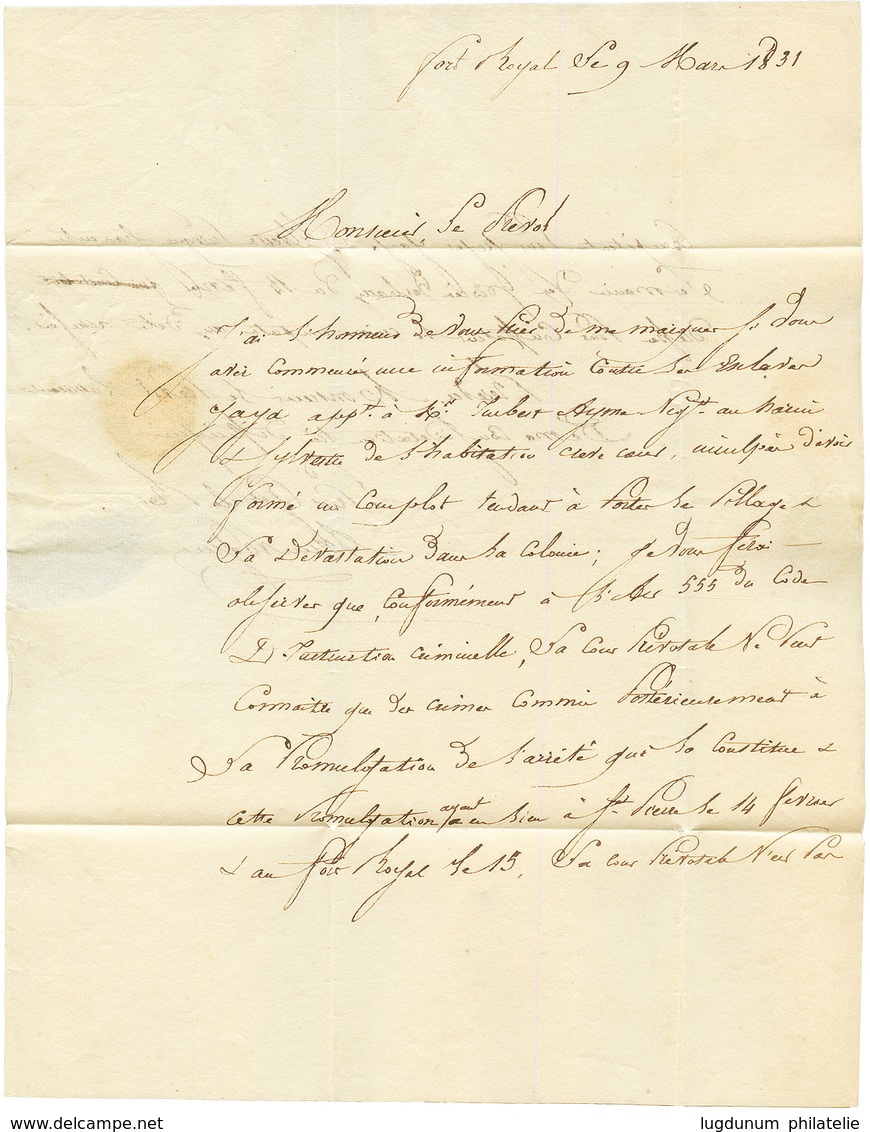 Fort Royal le 9 Mars 1831
Monsieur Le Prevot
J'ai l'honneur de vous de me marquer
avez commencé une information contre les Esclaves
appt. à Mr. Aymé Negt. au marin
& Sylvestre de l'habitation cœur, inculpés d'avoir
formé un complot tendant à Porter le Pillage &
La Dévastation dans la colonie; je vous ferai
observer que, conformément à l'Art 555 du Code
D'Instruction criminelle, La Cour Prévotale Ne Peut
Connaitre que des crimes commis Postérieurement à
La Promulgation de l'arrêté qui la constitue &
cette Promulgation ayant eu lieu à St. Pierre le 14 février
& au Fort Royal le 15, La cour Prévotale N'est Pas
www.delcampe.net
lugdunum philatelie